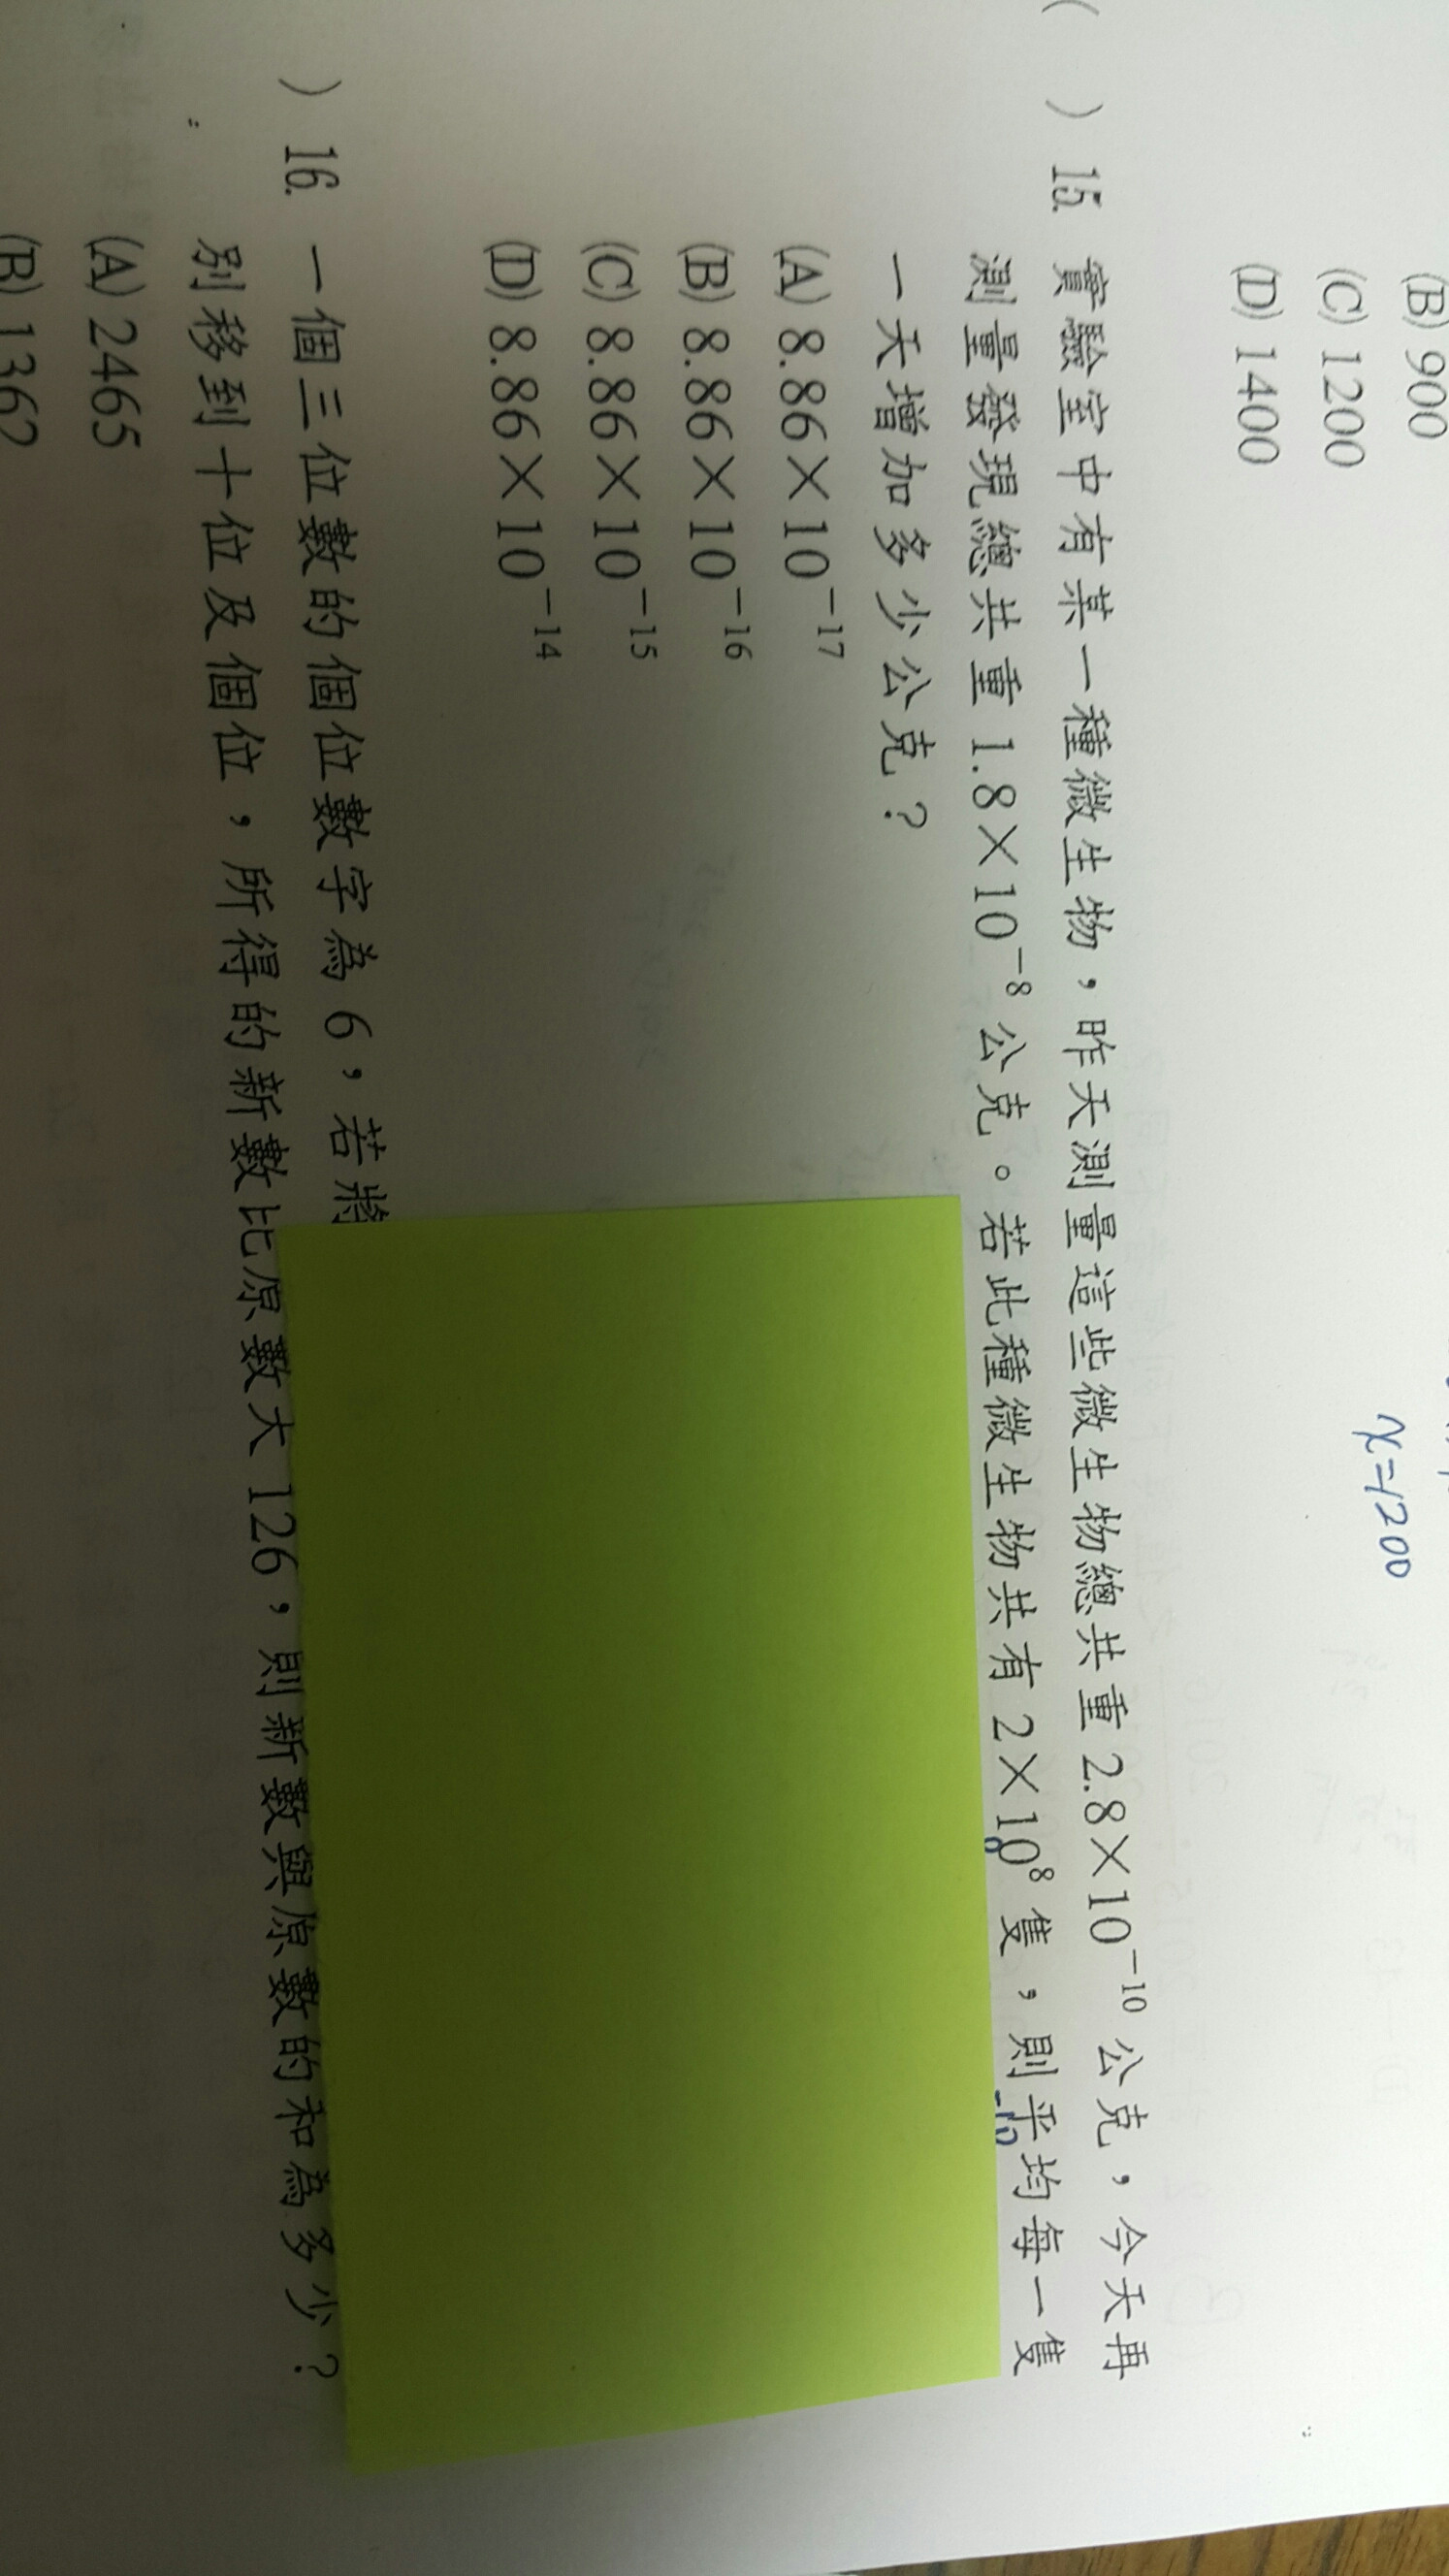 (B) 900
(C) 1200
(D) 1400
x=1200
( ) 15. 實驗室中有某一種微生物，昨天測量這些微生物總共重 2.8×10⁻¹⁰ 公克，今天再
測量發現總共重 1.8×10⁻⁸ 公克。若此種微生物共有 2×10⁸ 隻，則平均每一隻
一天增加多少公克？
(A) 8.86×10⁻¹⁷
(B) 8.86×10⁻¹⁶
(C) 8.86×10⁻¹⁵
(D) 8.86×10⁻¹⁴
) 16. 一個三位數的個位數字為 6，若將
別移到十位及個位，所得的新數比原數大 126，則新數與原數的和為多少？
(A) 2465
(B) 1362